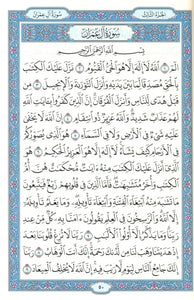 الجزء الثالث سورة آل عمران
سورة آل عمران
بسم الله الرحمن الرحيم
الٓمٓ ١ ٱللَّهُ لَآ إِلَٰهَ إِلَّا هُوَ ٱلۡحَيُّ ٱلۡقَيُّومُ ٢ نَزَّلَ عَلَيۡكَ ٱلۡكِتَٰبَ
بِٱلۡحَقِّ مُصَدِّقٗا لِّمَا بَيۡنَ يَدَيۡهِ وَأَنزَلَ ٱلتَّوۡرَىٰةَ وَٱلۡإِنجِيلَ ٣ مِن
قَبۡلُ هُدٗى لِّلنَّاسِ وَأَنزَلَ ٱلۡفُرۡقَانَۗ إِنَّ ٱلَّذِينَ كَفَرُواْ بِـَٔايَٰتِ ٱللَّهِ
لَهُمۡ عَذَابٞ شَدِيدٞۗ وَٱللَّهُ عَزِيزٞ ذُو ٱنتِقَامٍ ٤ إِنَّ ٱللَّهَ لَا يَخۡفَىٰ
عَلَيۡهِ شَيۡءٞ فِي ٱلۡأَرۡضِ وَلَا فِي ٱلسَّمَآءِ ٥ هُوَ ٱلَّذِي يُصَوِّرُكُمۡ
فِي ٱلۡأَرۡحَامِ كَيۡفَ يَشَآءُۚ لَآ إِلَٰهَ إِلَّا هُوَ ٱلۡعَزِيزُ ٱلۡحَكِيمُ ٦ هُوَ
ٱلَّذِيٓ أَنزَلَ عَلَيۡكَ ٱلۡكِتَٰبَ مِنۡهُ ءَايَٰتٞ مُّحۡكَمَٰتٌ هُنَّ أُمُّ
ٱلۡكِتَٰبِ وَأُخَرُ مُتَشَٰبِهَٰتٞۖ فَأَمَّا ٱلَّذِينَ فِي قُلُوبِهِمۡ زَيۡغٞ فَيَتَّبِعُونَ
مَا تَشَٰبَهَ مِنۡهُ ٱبۡتِغَآءَ ٱلۡفِتۡنَةِ وَٱبۡتِغَآءَ تَأۡوِيلِهِۦۖ وَمَا يَعۡلَمُ تَأۡوِيلَهُۥٓ
إِلَّا ٱللَّهُۗ وَٱلرَّٰسِخُونَ فِي ٱلۡعِلۡمِ يَقُولُونَ ءَامَنَّا بِهِۦ كُلّٞ مِّنۡ عِندِ رَبِّنَاۗ
وَمَا يَذَّكَّرُ إِلَّآ أُوْلُواْ ٱلۡأَلۡبَٰبِ ٧ رَبَّنَا لَا تُزِغۡ قُلُوبَنَا بَعۡدَ
إِذۡ هَدَيۡتَنَا وَهَبۡ لَنَا مِن لَّدُنكَ رَحۡمَةًۚ إِنَّكَ أَنتَ ٱلۡوَهَّابُ ٨ رَبَّنَآ
إِنَّكَ جَامِعُ ٱلنَّاسِ لِيَوۡمٖ لَّا رَيۡبَ فِيهِۚ إِنَّ ٱللَّهَ لَا يُخۡلِفُ ٱلۡمِيعَادَ ٩
٥٠